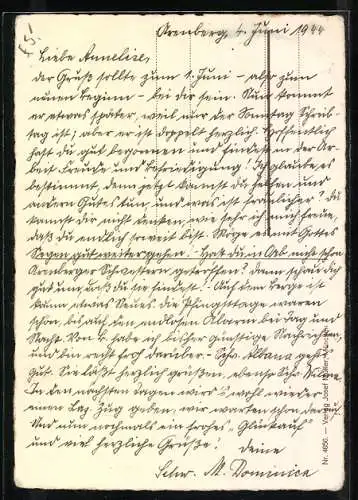 Arenberg, 4. Juni 1944
Liebe Anneliese,
der Gruß sollte zum 1. Juni – also zum
neuen Beginn – bei dir sein. Nun kommt
er etwas später, weil nur der Sonntag Schreib-
tag ist; aber er ist doppelt herzlich. Hoffentlich
hast du gut begonnen und findest in der Ar-
beit Freude und Befriedigung! Ich glaube es
bestimmt, denn jetzt kannst du helfen und
andern Gutes tun, und was ist fraulicher? Du
kannst dir nicht denken, wie sehr ich mich freue,
daß du endlich so weit bist. Möge es mit Gottes
Segen gut weitergehen! Hast du in nicht schon
Arenberger Schwestern getroffen? Dann schau dich
gut um, daß du sie findest! – Auf dem Berge ist
kaum etwas Neues. Die Pfingsttage waren
schön, bis auf den endlosen Alarm bei Tag und
Nacht. Von habe ich bisher günstige Nachrichten,
und bin recht froh darüber. – Schw. geht es
gut. Sie läßt herzlich grüßen, ebenso Schw.
In den nächsten Tagen wird's wohl wieder
einen Laz. Zug geben, wir warten schon darauf.
Und nun nochmals ein frohes „Glückauf"
und viel herzliche Grüße! deine
Schw. M. Dominica
Nr. 4656. — Verlag Josef